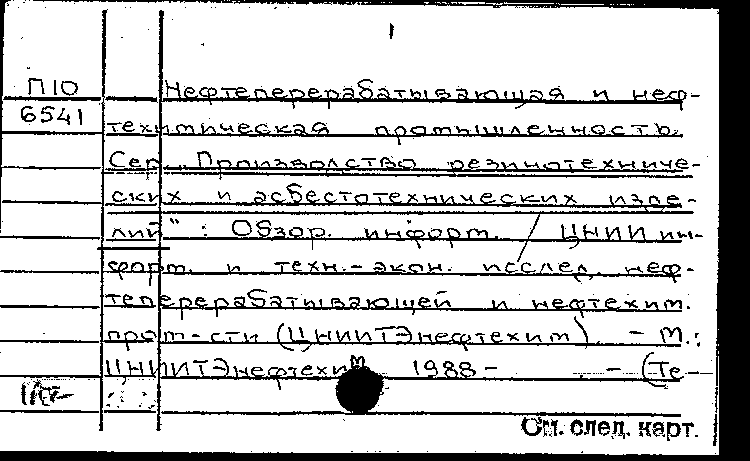 П10
6541
Нефтеперерабатывающая и неф-
техимическая промышленность.
Сер. „Производство резинотехниче-
ских и асбестотехнических изде-
лий" : Обзор. информ. / ЦНИИ ин-
форм. и техн.-экон. исслед. неф-
теперерабатывающей и нефтехим.
пром-сти (ЦНИИТЭнефтехим). - М.:
ЦНИИТЭнефтехим 1988 - . - (Те-
См. след. карт.